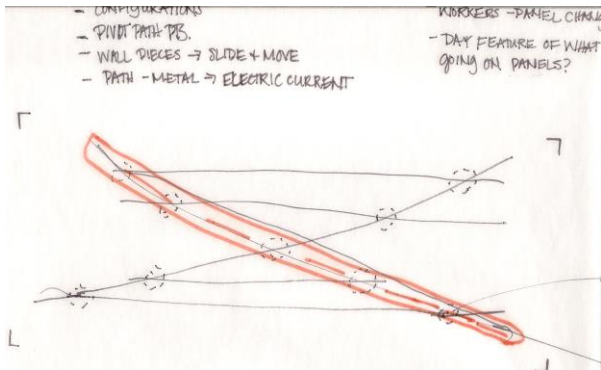 - CONFIGURATIONS
- PIVOT PATH PB.
- WALL PIECES → SLIDE & MOVE
- PATH - METAL → ELECTRIC CURRENT
WORKERS - PANEL CHANG
- DAY FEATURE OF WHAT
GOING ON PANELS?